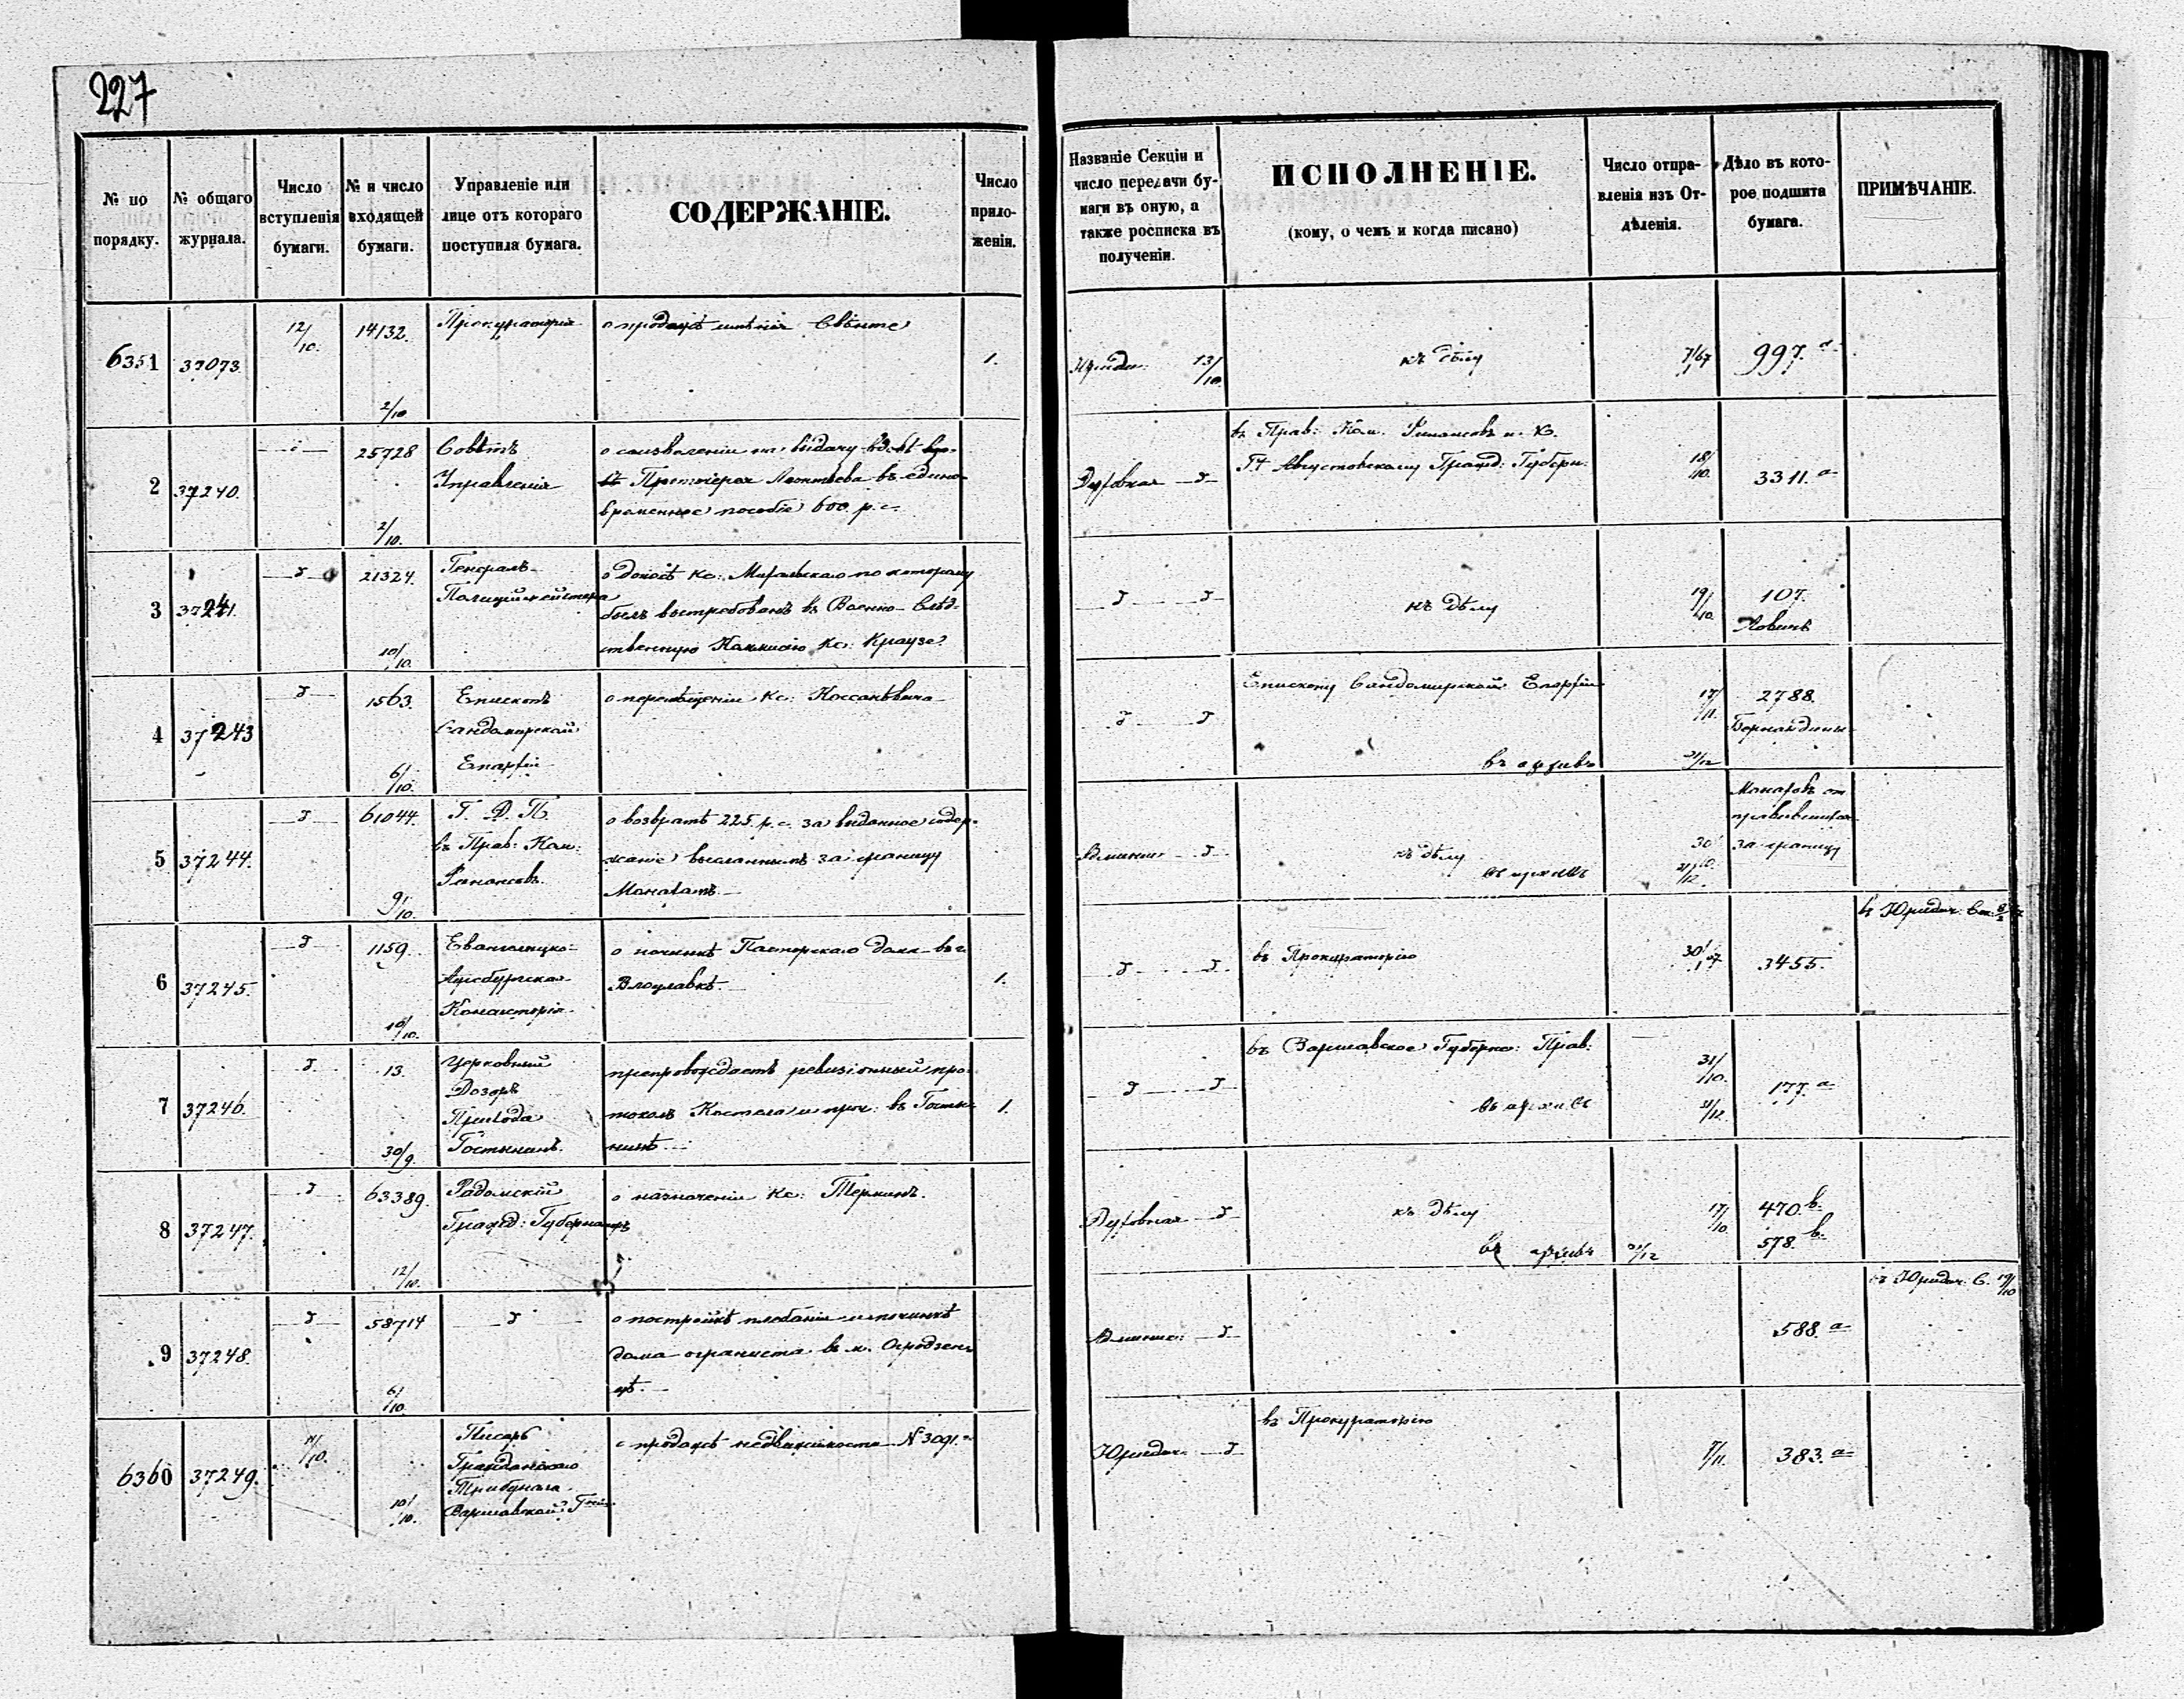 227
№ по порядку.
№ общаго журнала.
Число вступленія бумаги.
№ и число входящей бумаги.
Управленіе или лице отъ котораго поступила бумага.
СОДЕРЖАНІЕ.
Число приложеній.
Названіе Секціи и число передачи бумаги въ оную, а также росписка въ полученіи.
ИСПОЛНЕНІЕ.
(кому, о чемъ и когда писано)
Число отправленія изъ Отдѣленія.
Дѣло въ которое подшита бумага.
ПРИМѢЧАНІЕ.
6351
37073
12/10.
14132.
2/10
Прокураторія
о продажѣ имѣнія
1.
13/10
къ дѣлу
7/67
997. а
2
37240.
25728
2/10.
Совѣтъ
Управленія
о соизволеніи на выдачу вдовѣ
Протоіерея Леонтьева въ едино-
временное пособіе 600 р. с.
Духовная
въ Прав: Ком. Финансовъ
Августовскому Гражд: Губерн:
18/10.
3311. а
3
37241.
21324.
10/10.
Генералъ-
Полицiймейстера
о доносѣ Кс:
по которому
былъ вытребованъ въ Военно-Слѣд-
ственную Коммисію Кс: Краузе
къ дѣлу
19/10.
107.
4
37243
1563.
6/10.
Епископъ
Сандомирской
Епархіи
о перемѣщеніи Кс:
Епископу Сандомирской Епархіи
въ архивъ
17/11.
31/12
2788.
Бернардины
5
37244.
61044.
9/10.
Г. Д. П.
въ Прав: Ком:
Финансовъ
о возвратѣ 225 р. с. за выданное содер-
жаніе высланнымъ за границу
Монахамъ
къ дѣлу
въ архивъ
30/10.
31/12.
Монаховъ от
правившихся
за границу
6
37245.
1159.
10/10.
Евангелицко-
Аугсбургская
Консисторія
о починкѣ Пасторскаго дома въ г.
Влоцлавкѣ.
1.
въ Прокураторію
30/1 67
3455.
въ Юридич: Сек:
7
37246.
13.
30/9.
Церковный
Дозоръ
Прихода
Гостынинъ.
препровождаетъ ревизіонный про-
токолъ Костела и проч: въ Госты-
нинѣ
1.
въ Варшавское Губернс: Прав:
въ архивъ
31/10.
31/12.
177. а
8
37247.
63389.
12/10.
Радомскій
Гражд: Губернаторъ
о назначеніи Кс: Теркинъ.
Духовная
къ дѣлу
въ архивъ
31/12
17/10
470. в.
578. в.
9
37248.
58714
6/10.
о постройкѣ плебаніи и починкѣ
дома органиста въ м. Огродзен-
цѣ.
588. а
въ Юридич: С. 19/10
6360
37249.
10/10.
Писарь
Гражданскаго
Трибунала
Варшавской Г
о продажѣ недвижимости № 3091.
Юридич.
въ Прокураторію
7/11.
383. а